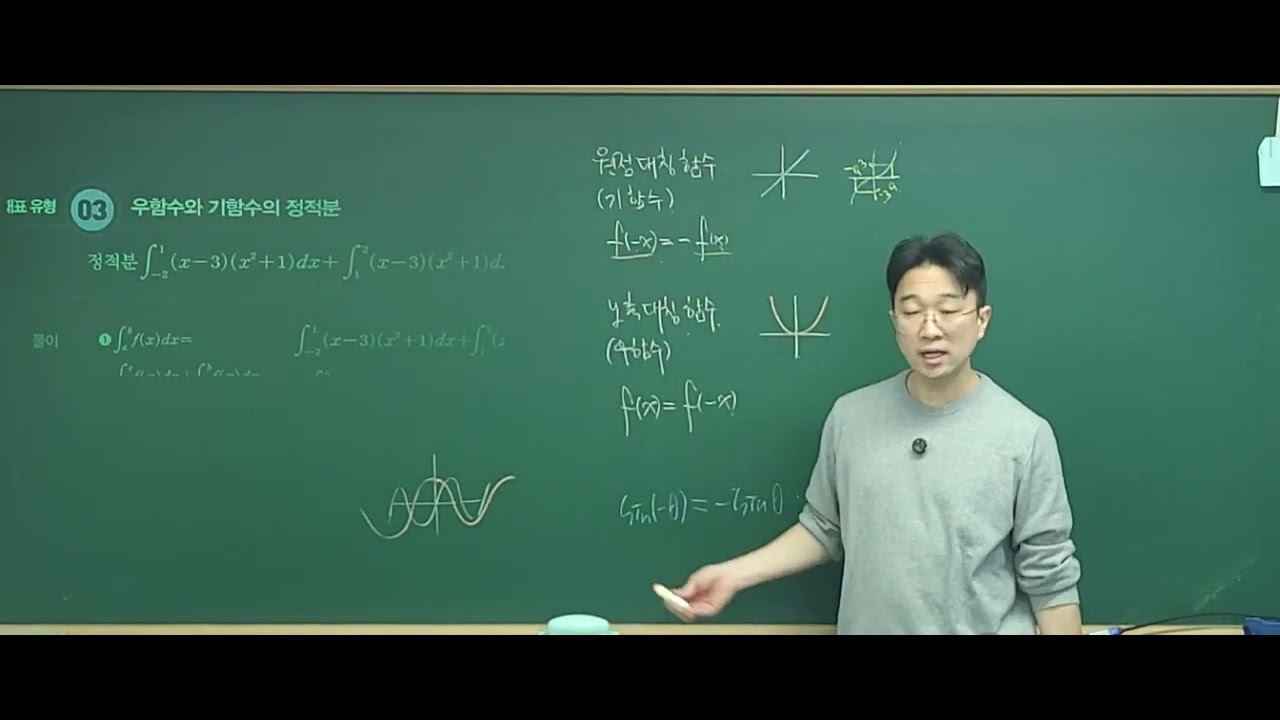 대표 유형 03 우함수와 기함수의 정적분
정적분 ∫₋₂¹(x−3)(x²+1)dx+∫₁²(x−3)(x²+1)d
풀이 ❶ ∫ₐᵇ f(x)dx= ∫₋₂¹(x−3)(x²+1)dx+∫₁²(x
원점 대칭 함수
(기함수)
f(-x)=-f(x)
y축 대칭 함수
(우함수)
f(x)=f(-x)
sin(-θ)=-sinθ